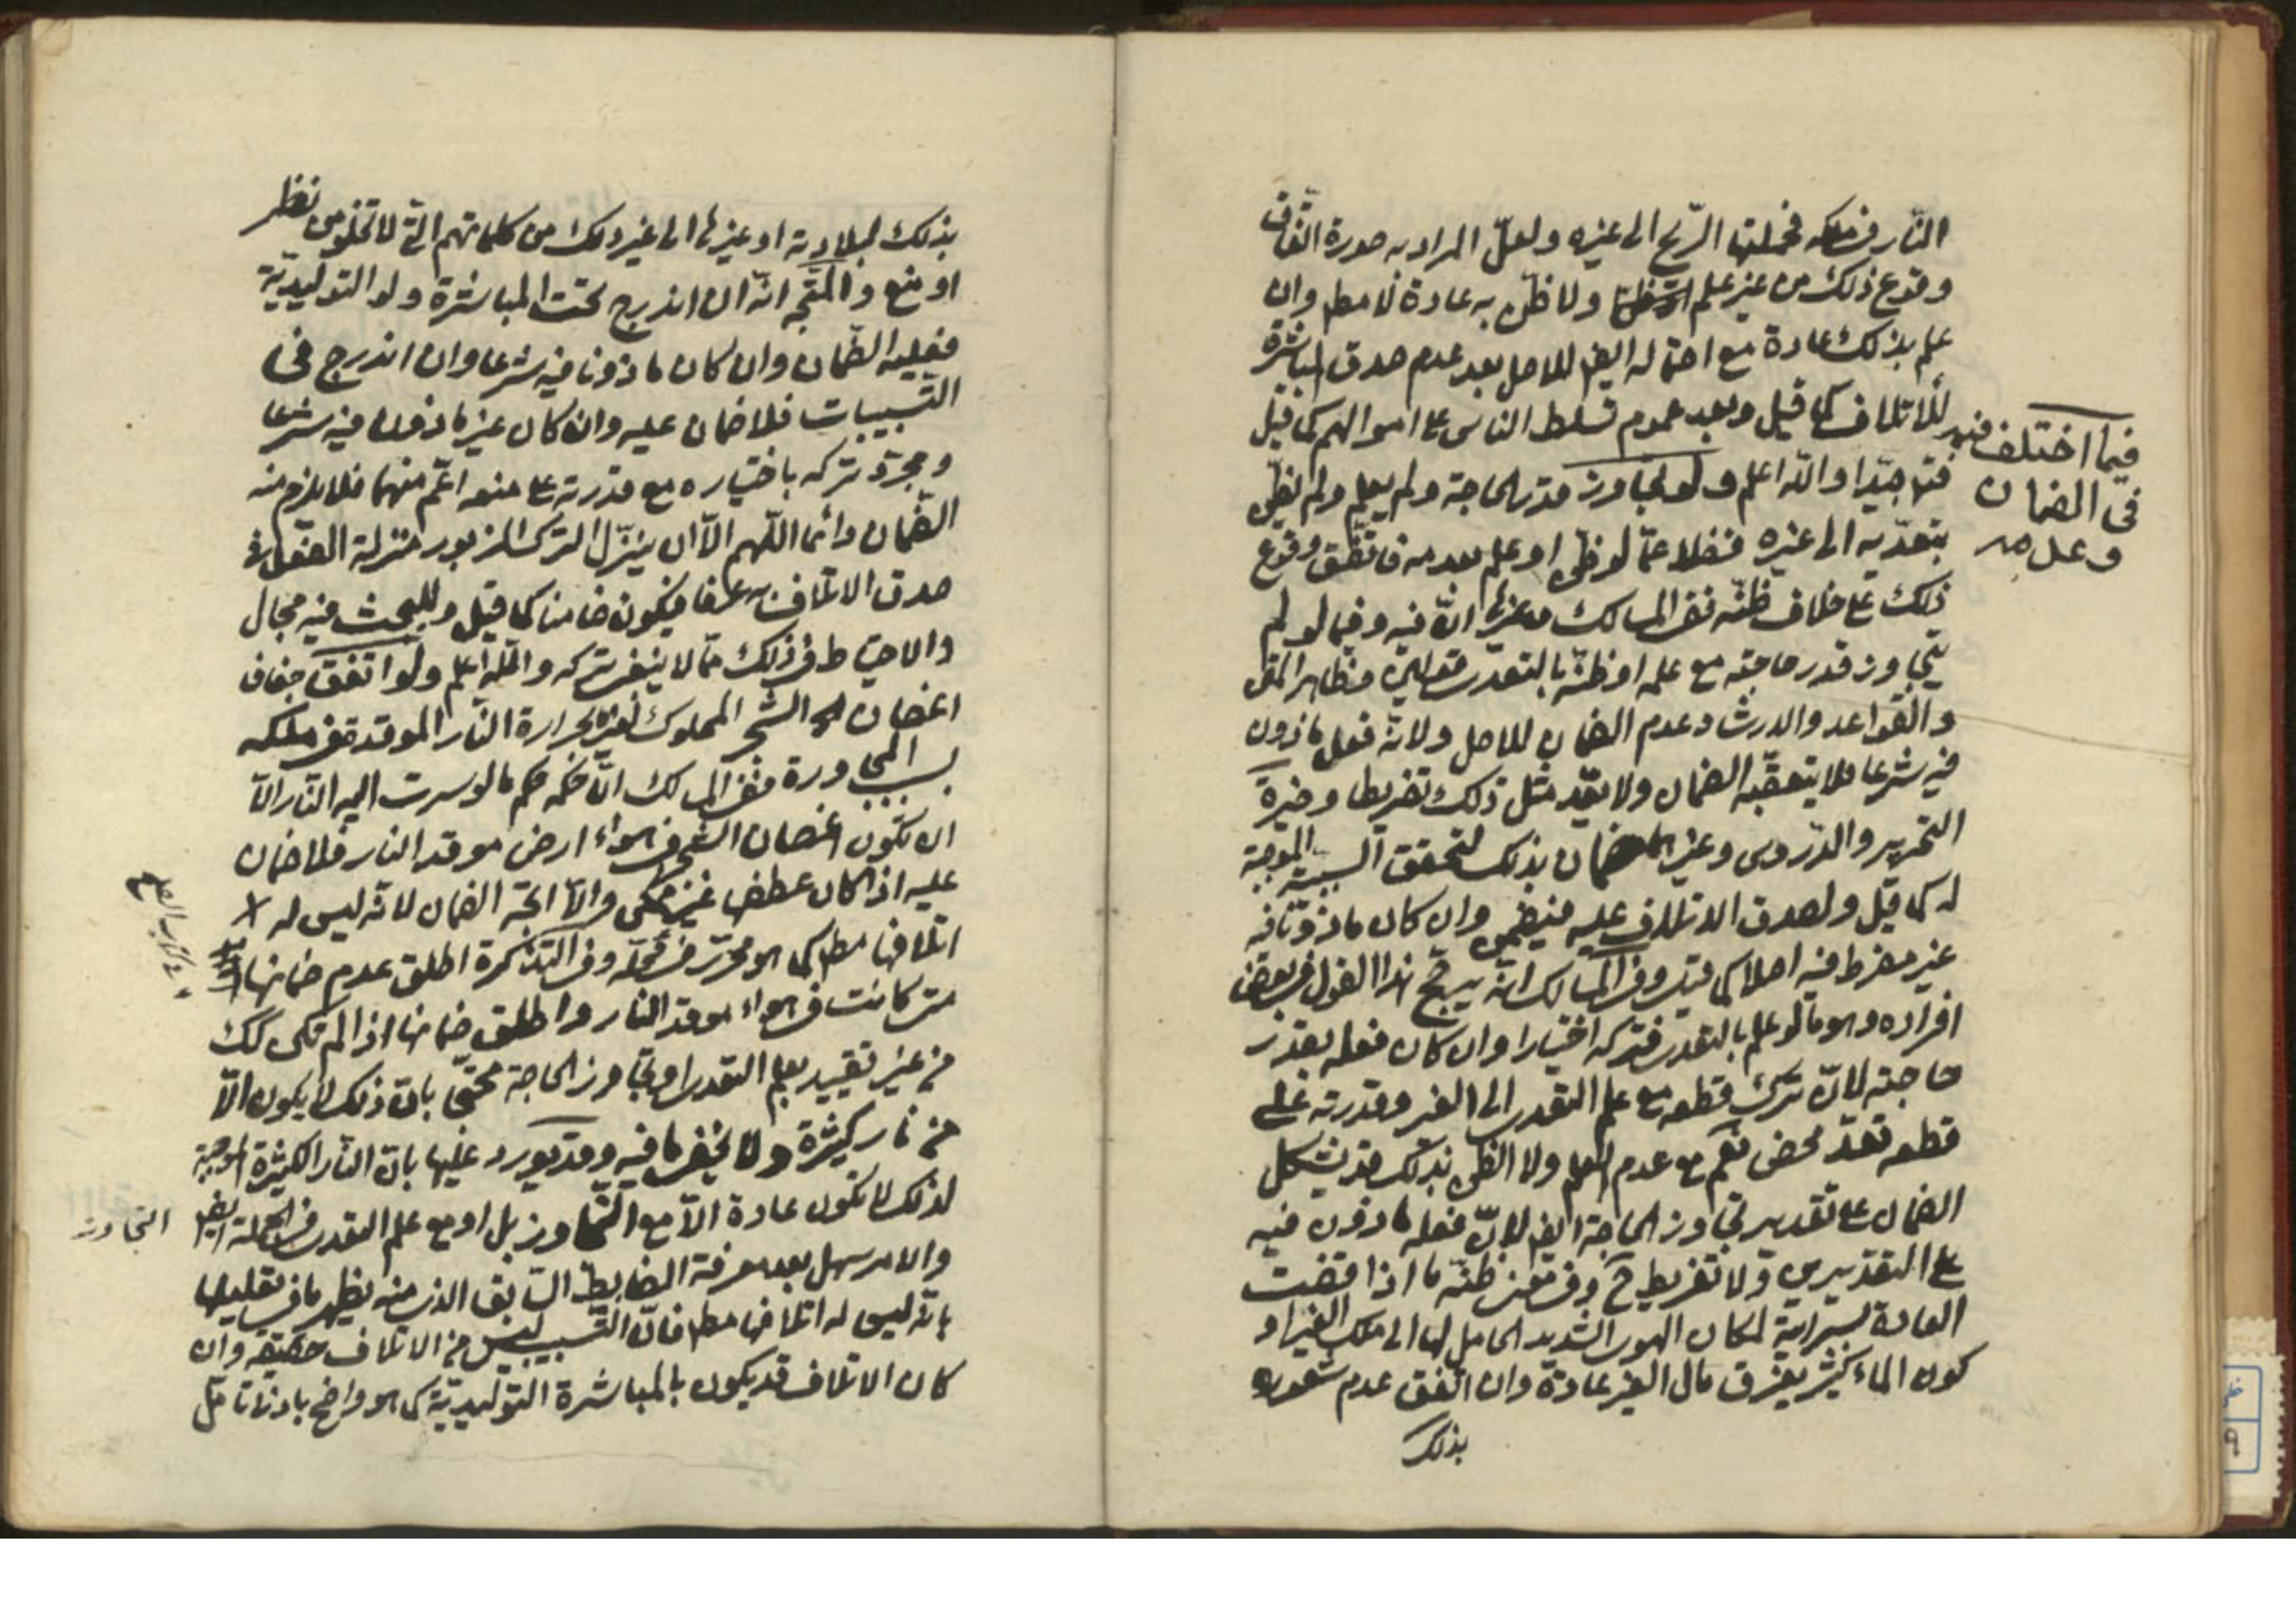 النّار في ملكه فحملتها الرّيح الى غيره ولعلّ المراد به صورة اتّفاق
وقوع ذلك من غير علم ولا ظنّ به عادة لا مطم وان
علم بذلك عادة مع احتماله ايضا للاصل بعد عدم صدق المباشرة
للاتلاف كما قيل وبعد عموم تسلط الناس على اموالهم كما قيل
فتم جيّدا والله اعلم ولو تجاوز قدر الحاجة ولم يعلم ولم يظن
بتعدّيه الى غيره فضلا عمّا لو ظن او علم بعدمه فاتّفق وقوع
ذلك على خلاف ظنّه ففى المسالك وغيرها انّ فيه وفيما لو لم
يتجاوز قدر حاجته مع علمه او ظنّه بالتعدّى قولين فظاهر المتن
والقواعد والارشاد عدم الضمان للاصل ولانّه فعل ماذون
فيه شرعا فلا يتعقّبه الضمان ولا يعدّ مثل ذلك تفريطا وخيرة
التحرير والدّروس وغيرهما ضمان بذلك لتحقق السببيّة الموجبة
له كما قيل ولصدق الاتلاف عليه فيضمن وان كان ماذونا فيه
غير مفرط فيه اصلا كما قيل وفى المسالك انّه يرجّح هذا القول فى بعض
افراده وهو ما لو علم بالتعدى فتركه اختيارا وان كان فعله بقدر
حاجته لانّ ترك قطعه مع علم التعدى الى الغير وقدرته على
قطعه تعدّ محض نعم مع عدم العلم ولا الظن بذلك قد يشكل
الضمان على تقدير تجاوز الحاجة ايضا لانّ فعله ماذون فيه
على التقديرين ولا تفريط ح وفى معنى ظنّه ما اذا قضت
العادة بسرايته لمكان الهوى الشديد الحامل لها الى ملك الغير او
كون الماء كثير يغرق مال الغير عادة وان اتّفق عدم شعوره
بذلك
فيما اختلف فيه
فى الضمان
وعدمه
بذلك لبلادته او غيرها الى غير ذلك من كلماتهم التى لا تخلو من نظر
او منع والمتّجه انّه ان اندرج تحت المباشرة ولو التوليديّة
فعليه الضّمان وان كان ماذونا فيه شرعا وان اندرج فى
التسبيبات فلا ضمان عليه وان كان غير ماذون فيه شرعا
ومجرّد تركه باختياره مع قدرته على منعه اعمّ منهما فلا يلزم منه
الضّمان دائما اللّهم الاّ ان ينزّل الترك المزبور منزلة الفعل فى
صدق الاتلاف به عرفا فيكون ضامنا كما قيل وللبحث فيه مجال
والاحتياط فى ذلك ممّا لا ينبغى تركه والله اعلم ولو اتفق جفاف
اغصان الشجر المملوك لغيره بحرارة النّار الموقدة فى ملكه
بسبب المجاورة ففى المسالك انّ حكمه حكم ما لو سرت اليه النّار الاّ
ان تكون اغصان الشجر فى هواء ارض موقد النار فلا ضمان
عليه اذا كان عطفها غير ممكن والاّ اتّجه الضمان لانّه ليس له
اتلافها مطم كما هو محرّر فى محلّه وفى التذكرة اطلق عدم ضمانها
متى كانت فى هواء موقد النار واطلق ضمانها اذا لم تكن كك
من غير تقييد بعلم التعدى او تجاوز الحاجة محتجّا بانّ ذلك لا يكون الاّ
من نار كثيرة ولا يخفى ما فيه وقد يورد عليها بانّ النّار الكثيرة الموجبة
لذلك لا تكون عادة الاّ مع التجاوز بل او مع علم التعدى فى الجملة ايضا
والامر سهل بعد معرفة الضابط السّابق الذى منه يظهر ما فى تعليلها
بانّه ليس له اتلافها مطم فانّ التسبيب ليس من الاتلاف حقيقه وان
كان الاتلاف قد يكون بالمباشرة التوليديّة كما هو واضح بادنى تامّل
التجاوز